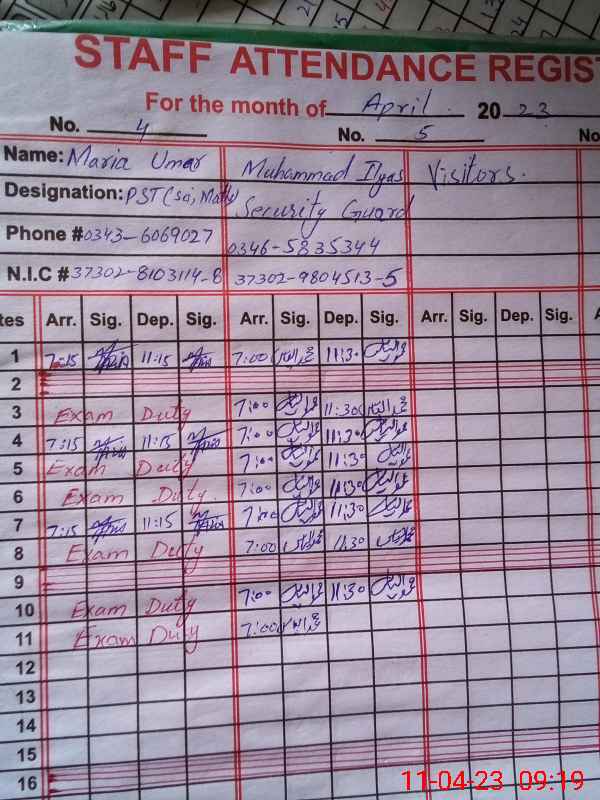 STAFF ATTENDANCE REGIST
For the month of April 2023
No. 4 No. 5 No
Name: Maria Umar Muhammad Ilyas Visitors.
Designation: PST (Sci, Math) Security Guard
Phone # 0343-6069027 0346-5835344
N.I.C # 37302-8103114-8 37302-9804513-5
tes Arr. Sig. Dep. Sig. Arr. Sig. Dep. Sig. Arr. Sig. Dep. Sig.
1 7:15 11:15 7:00 11:30
2
3 Exam Duty 7:00 11:30
4 7:15 11:15 7:00 11:30
5 Exam Duty 7:00 11:30
6 Exam Duty 7:00 11:30
7 7:15 11:15 7:00 11:30
8 Exam Duty 7:00 11:30
9
10 Exam Duty 7:00 11:30
11 Exam Duty 7:00
12
13
14
15
16
11-04-23 09:19